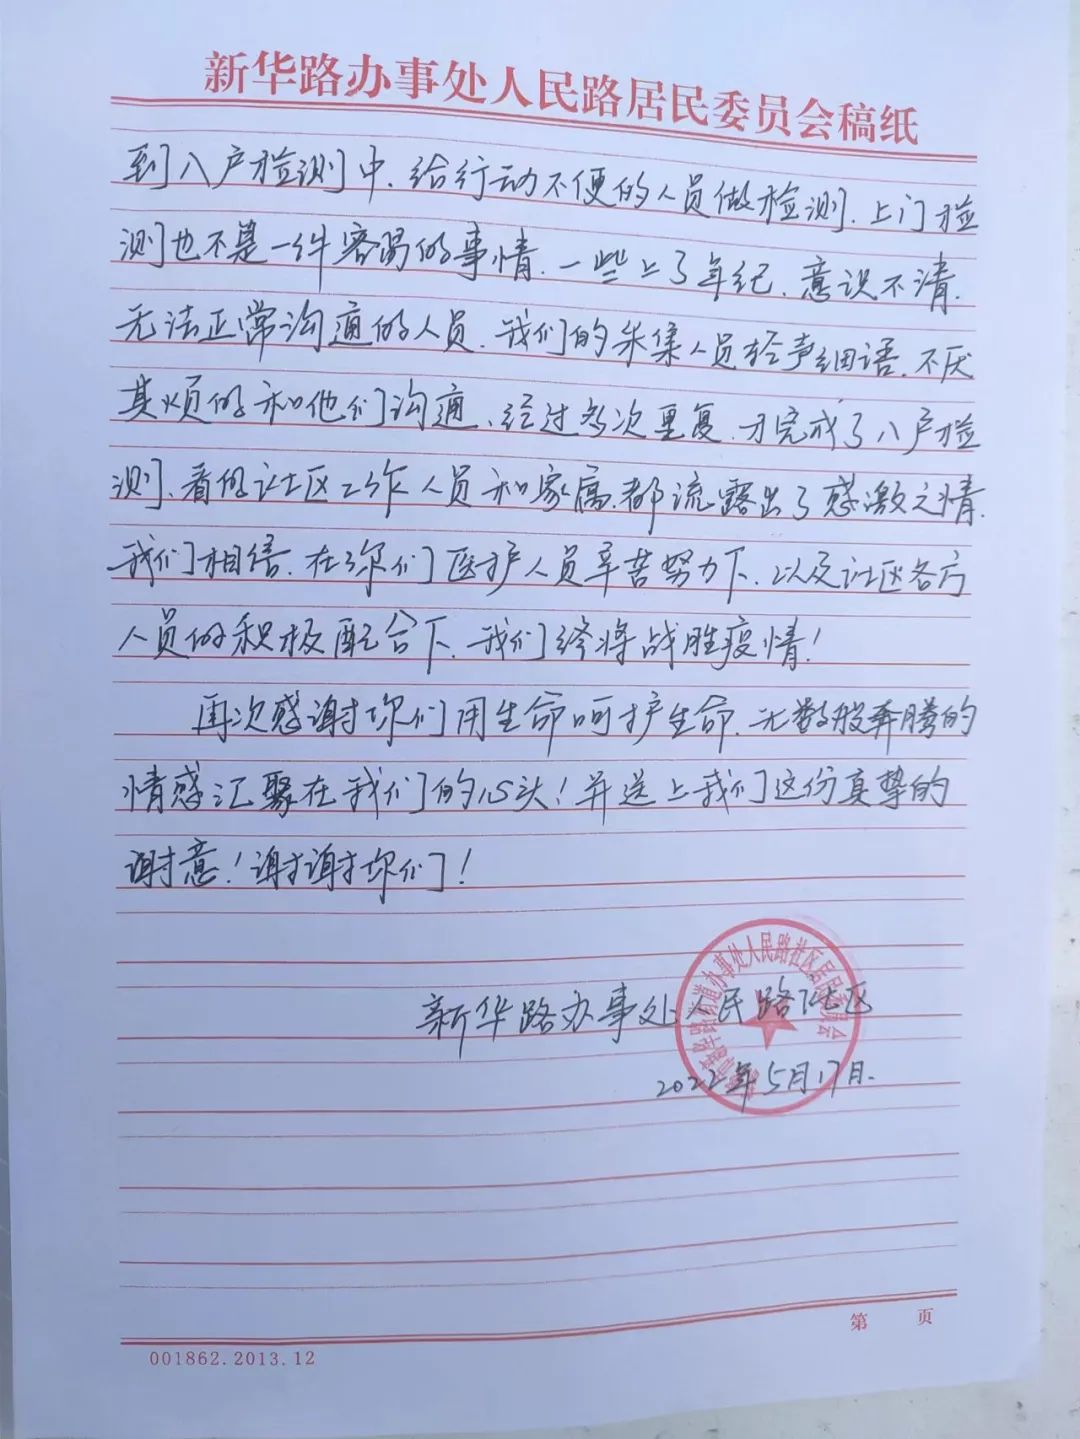 新华路办事处人民路居民委员会稿纸
到入户检测中、给行动不便的人员做检测、上门检
测也不是一件容易的事情、一些上了年纪、意识不清、
无法正常沟通的人员、我们的采集人员轻声细语、不厌
其烦的和他们沟通、经过多次重复、才完成了入户检
测、看的让社区工作人员和家属都流露出了感激之情、
我们相信、在你们医护人员辛苦努力下、以及社区各方
人员的积极配合下、我们终将战胜疫情！
再次感谢你们用生命呵护生命、无数般奔腾的
情感汇聚在我们的心头！并送上我们这份真挚的
谢意！谢谢你们！
新华路办事处人民路社区
2022年5月17日.
街道办事处人民路社区居民委员会
第 页
001862.2013.12